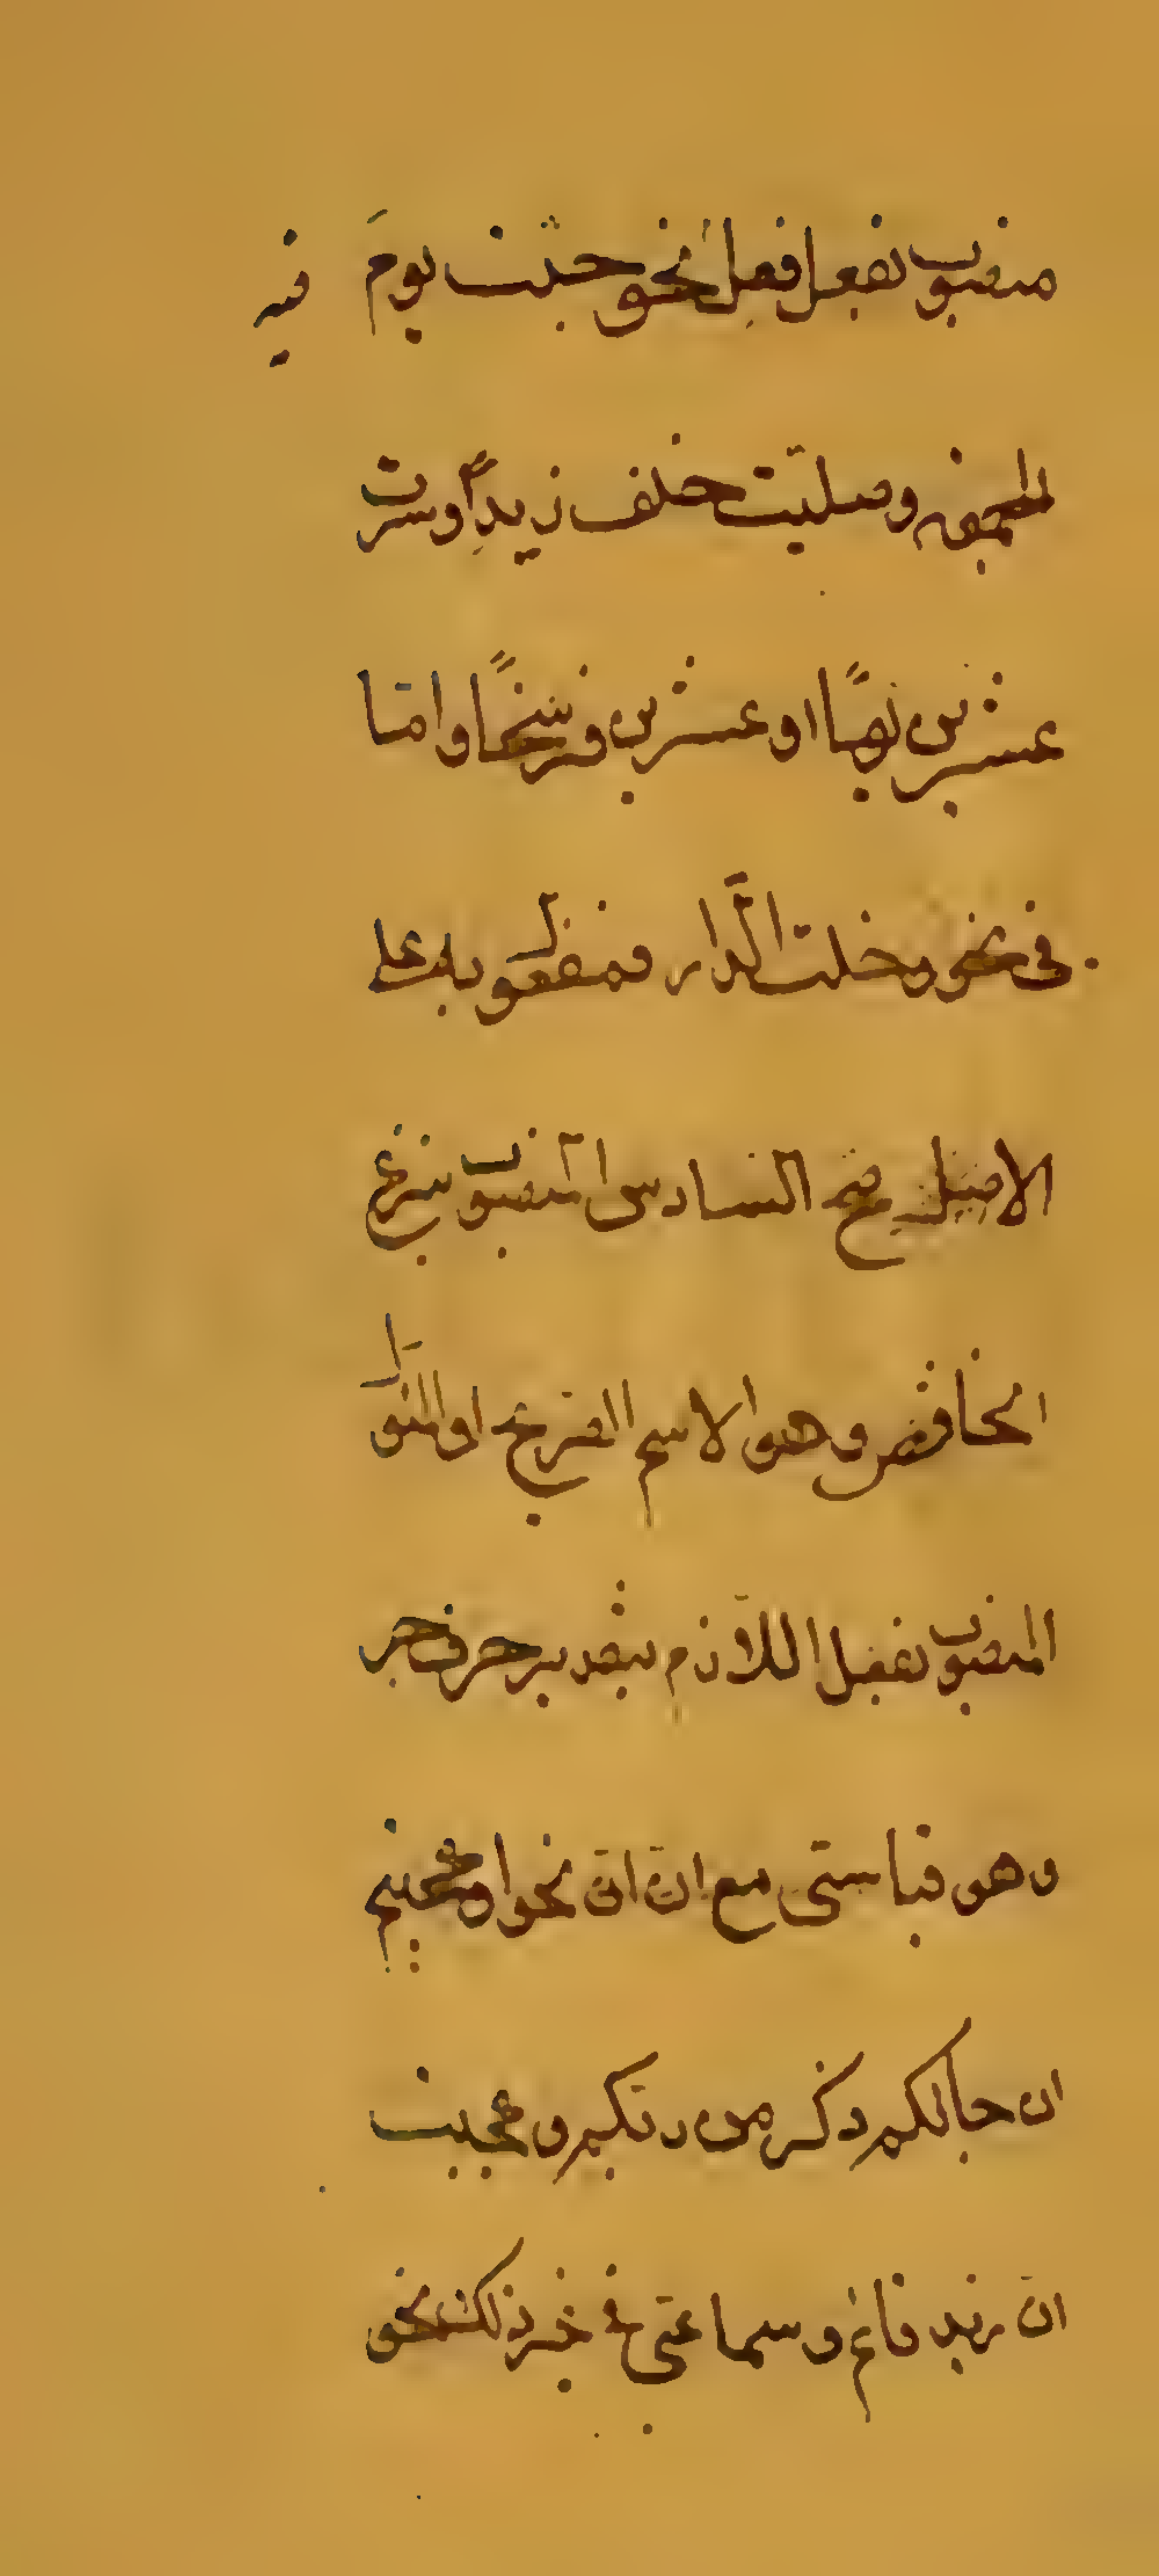 منصوب بفعل فعل نحو جئت يوم
الجمعة وصليت خلف زيد وسرت
عشرين يوما او عشرين فرسخا واما
في نحو دخلت الدار فمفعول به على
الاصح السادس المنصوب بنزع
الخافض وهو الاسم الصريح او المؤول
المنصوب بفعل اللازم بتقدير حرف جر
وهو قياسي مع ان ان نحو اوعجبتم
ان جاكم ذكر من ربكم وعجبت
ان زيد قائم وسماعي في غير ذلك نحو